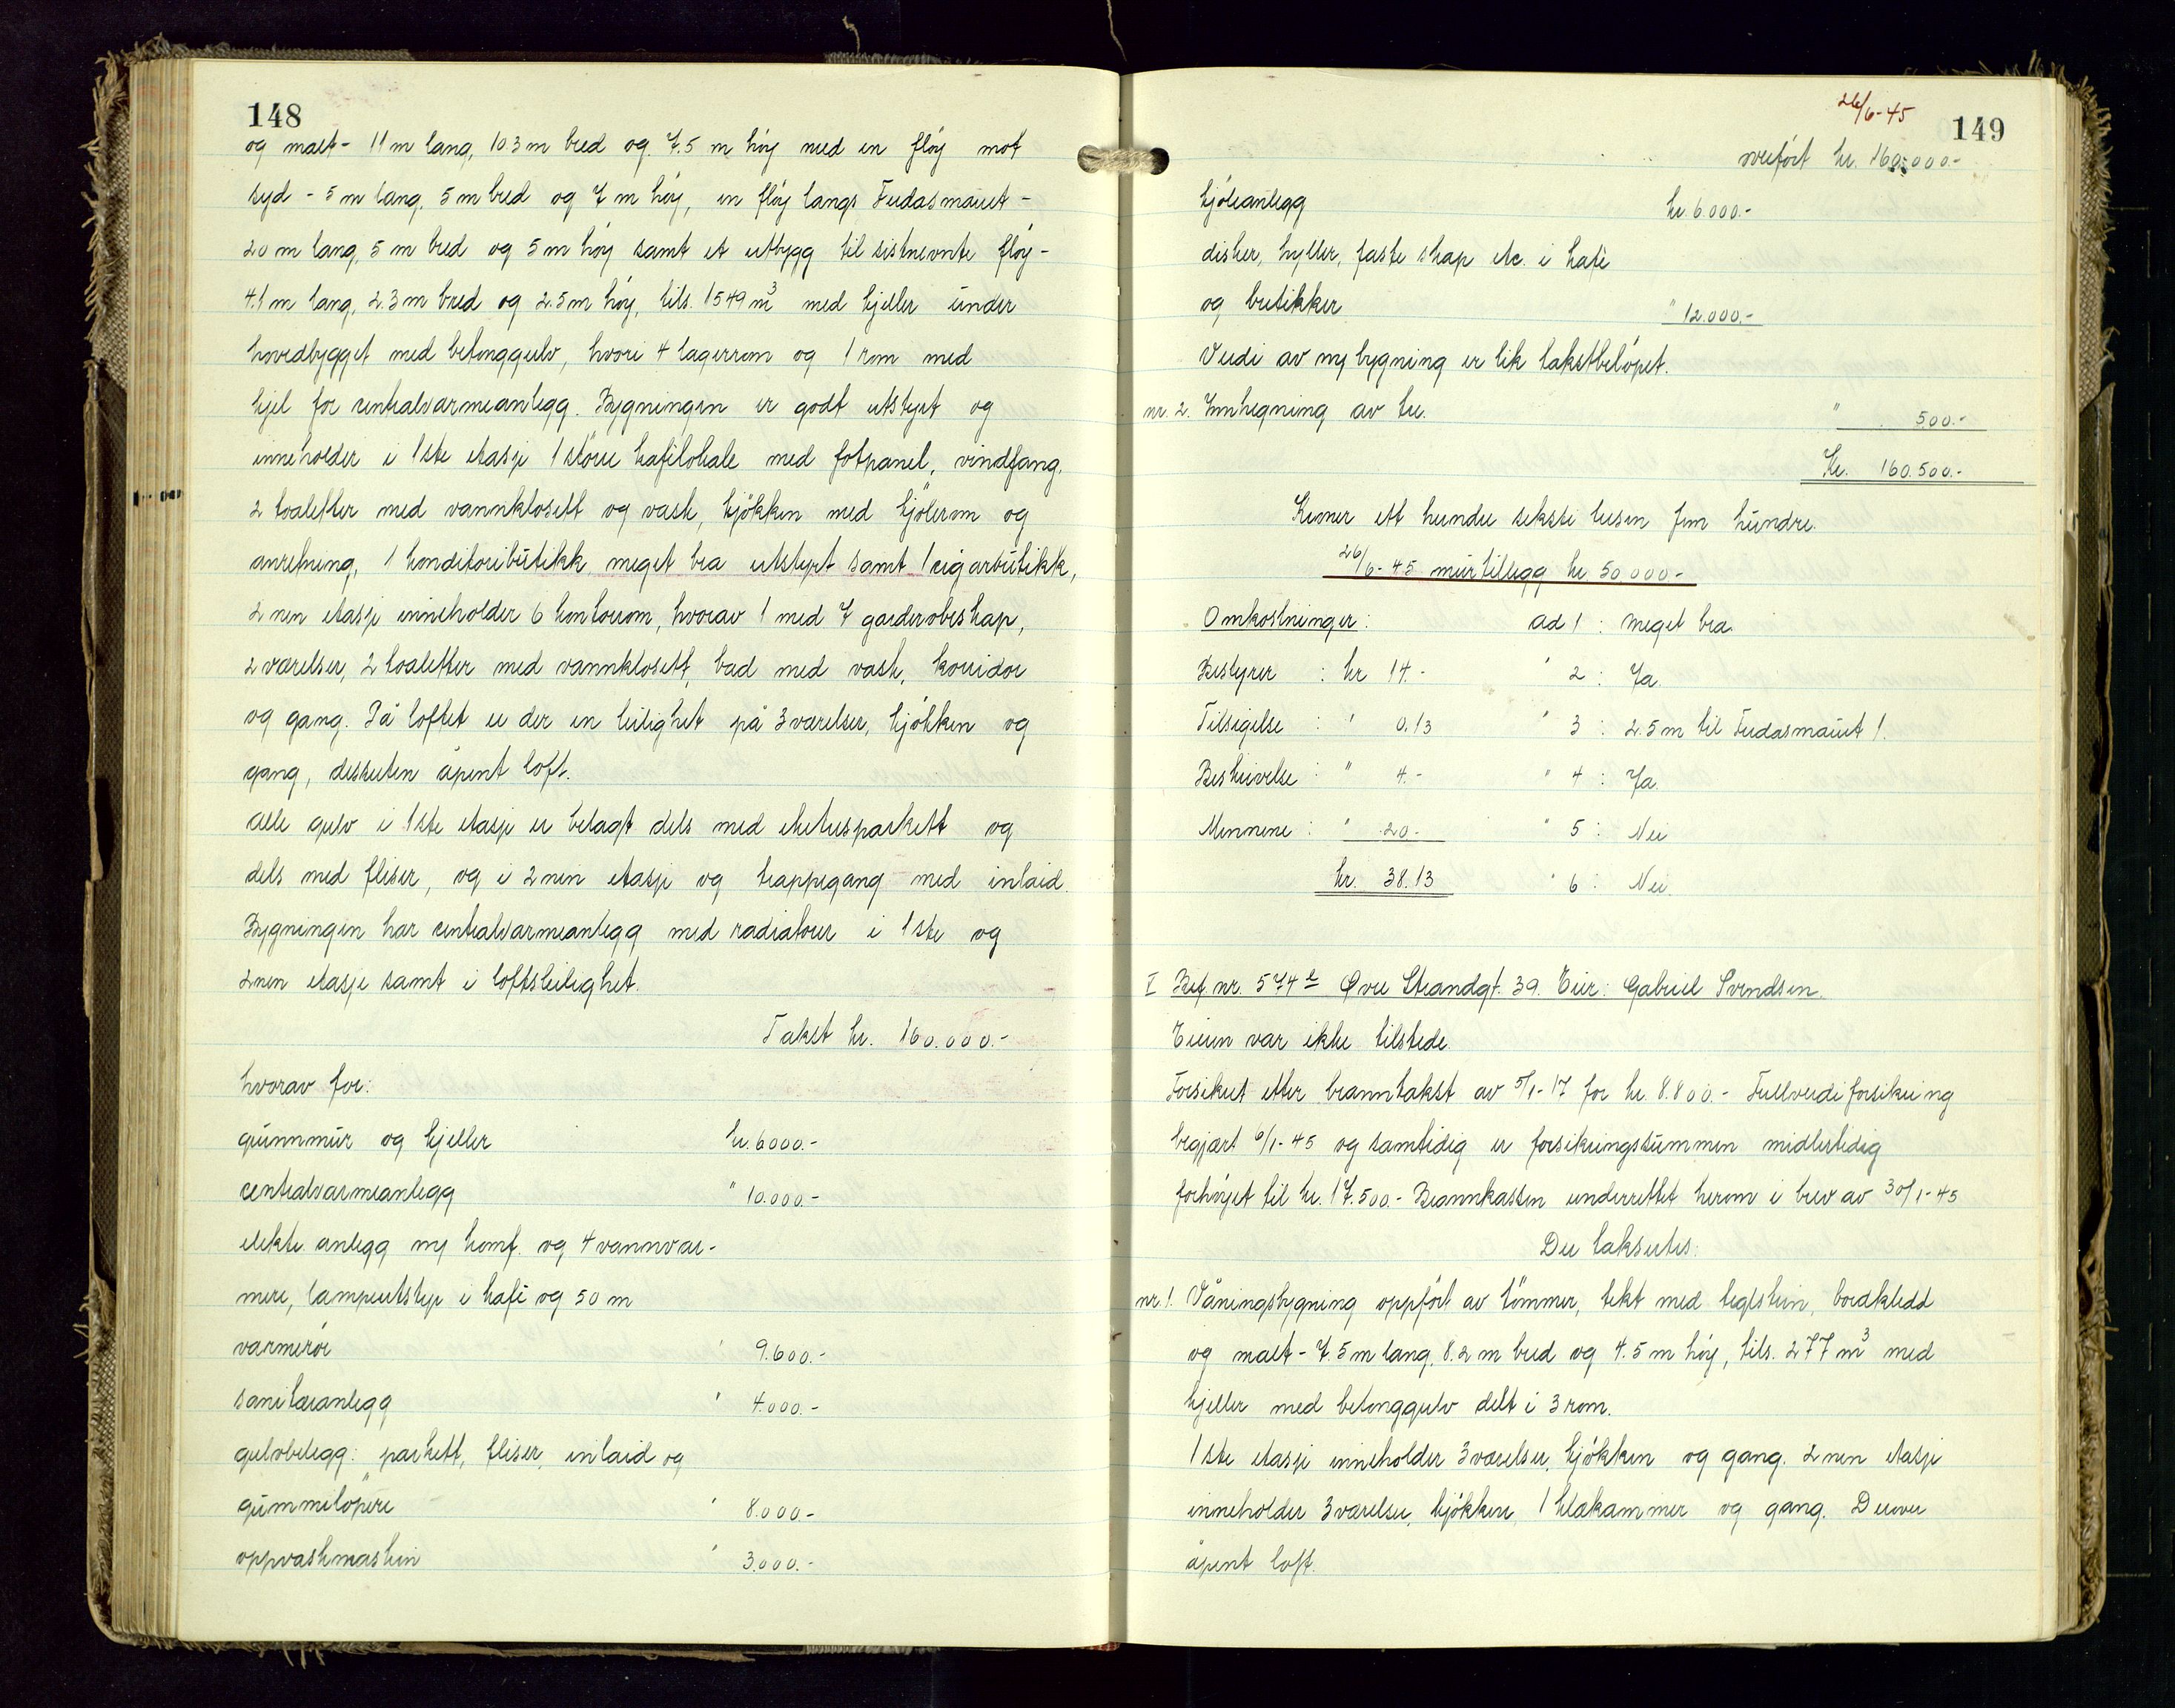 148
og malt - 11 m lang, 10.3 m bred og 7.5 m høy med en fløy mot
syd - 5 m lang, 5 m bred og 7 m høy, en fløy langs Fridasmauet -
20 m lang, 5 m bred og 5 m høy samt et utbygg til sistnevnte fløy -
4.1 m lang, 2.3 m bred og 2.5 m høy, tils. 1549 m³ med kjeller under
hovedbygget med betonggulv, hvori 4 lagerrom og 1 rom med
kjel for centralvarmeanlegg. Bygningen er godt utstyrt og
inneholder i 1ste etasje 1 större kafélokale med fotpanel, vindfang,
2 toaletter med vannklosett og vask, kjøkken med kjølerom og
anretning, 1 konditoributikk meget bra utstyrt samt 1 cigarbutikk,
2nen etasje inneholder 6 kontorrom, hvorav 1 med 7 garderobeskap,
2 værelser, 2 toaletter med vannklosett, bad med vask, korridor
og gang. På loftet er der en leilighet på 3 værelser, kjøkken og
gang, dessuten åpent loft.
Alle gulv i 1ste etasje er belagt dels med parkett og
dels med fliser, og i 2nen etasje og trappegang med inlaid.
Bygningen har centralvarmeanlegg med radiatorer i 1ste og
2nen etasje samt i loftsleilighet.
Takst kr. 160.000.-
hvorav for:
grunnmur og kjeller kr. 6000.-
centralvarmeanlegg " 10.000.-
elektr. anlegg m/ komf. og 4 vannvar-
mere, lampeutstyr i kafé og 50 m
varmerør " 9.600.-
sanitæranlegg " 4.000.-
gulvbelegg: parkett, fliser, inlaid og
gummiløpere " 8.000.-
oppvaskmaskin " 3.000.-
26/6-45
149
overført kr. 160.000.-
kjøleanlegg kr. 6.000.-
disker, hyller, faste skap etc. i kafé
og butikker " 12.000.-
Verdi av ny bygning er lik takstbeløpet.
nr. 2. Innhegning av tre. " 500.-
Kr. 160.500.-
Kroner ett hundre seksti tusen fem hundre.
26/6-45 murtillegg kr 50 000.-
Omkostninger: ad 1 : Meget bra.
Bestyrer : kr 14.- " 2 : Ja.
Tilsigelse : " 0.13 " 3 : 2.5 m til Fridasmauet 1.
Beskrivelse : " 4.- " 4 : Ja.
Mennene : " 20.- " 5 : Nei
kr. 38.13 " 6 : Nei.
I Bef nr. 574 e Øvre Strandgt. 39. Eier: Gabriel Svendsen.
Eieren var ikke tilstede.
Forsikret etter branntakst av 5/1-17 for kr. 8.800.- Fullverdiforsikring
begjært 6/1-45 og samtidig er forsikringssummen midlertidig
forhøyet til kr. 17.500.- Brannkassen underrettet herom i brev av 30/1-45
Der takseres:
nr. 1. Våningsbygning oppført av tömmer, tekt med teglstein, bordkledd
og malt - 7.5 m lang, 8.2 m bred og 4.5 m høy, tils. 277 m³ med
kjeller med betonggulv delt i 3 rom.
1ste etasje inneholder 3 værelser, kjøkken og gang. 2nen etasje
inneholder 3 værelser, kjøkken, 1 klækammer og gang. Derover
åpent loft.